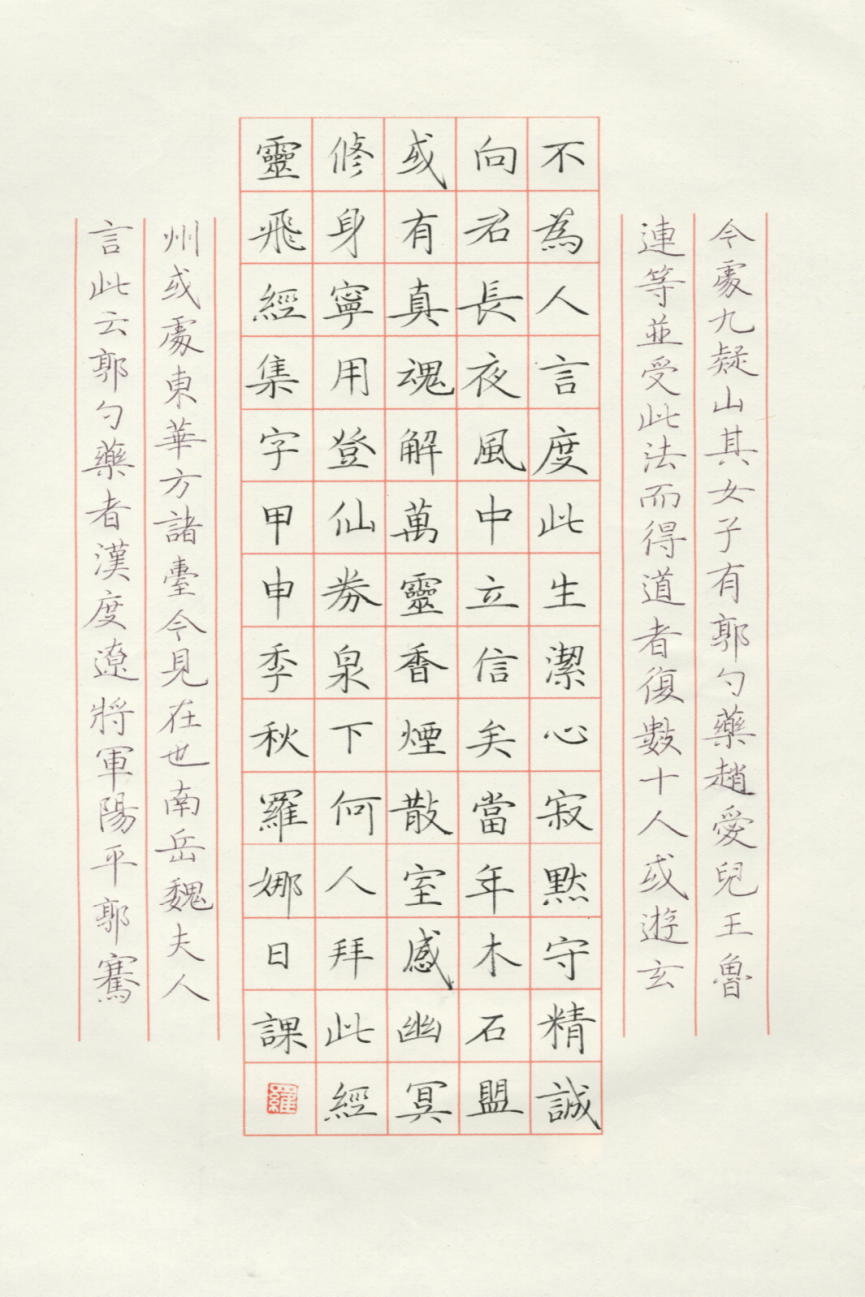 今處九疑山其女子有郭勺藥趙愛兒王魯
連等並受此法而得道者復數十人或遊玄
不為人言度此生潔心寂默守精誠
向君長夜風中立信矣當年木石盟
或有真魂解萬靈香煙散室感幽冥
修身寧用登仙券泉下何人拜此經
靈飛經集字甲申季秋羅娜日課
羅
州或處東華方諸臺今見在也南岳魏夫人
言此云郭勺藥者漢度遼將軍陽平郭騫